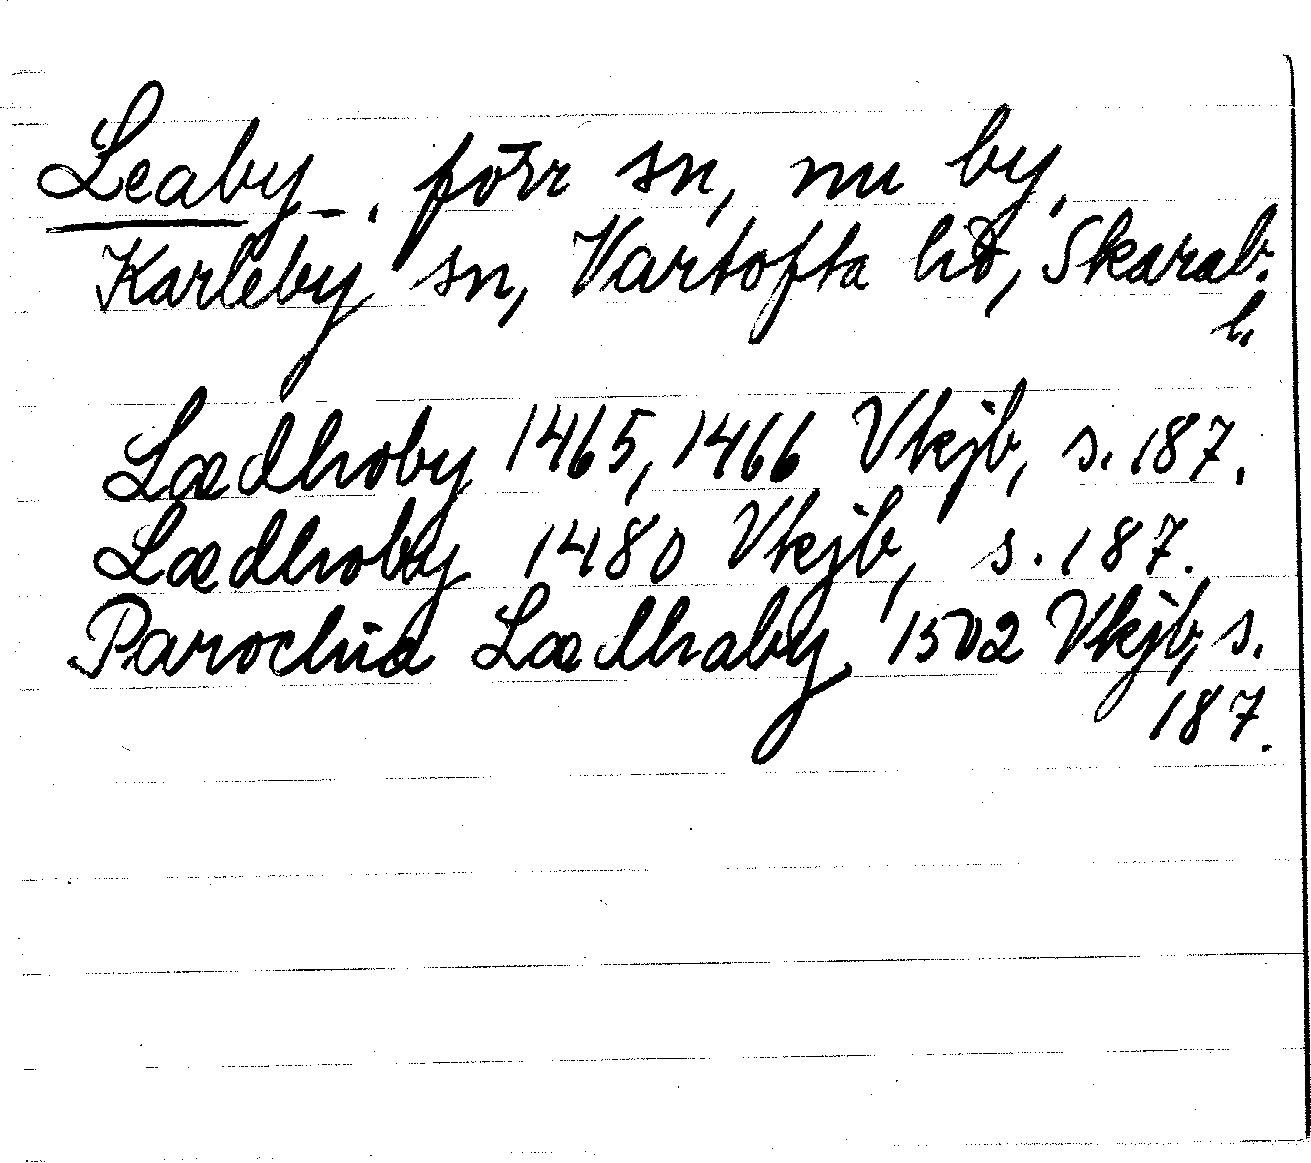 Leaby, förr sn, nu by,
Karleby sn, Vartofta hd, Skarab.
l.
Lædhoby 1465, 1466 Vkjb, s. 187.
Lædhoby 1480 Vkjb, s. 187.
Parochia Lædhaby, 1502 Vkjb, s.
187.